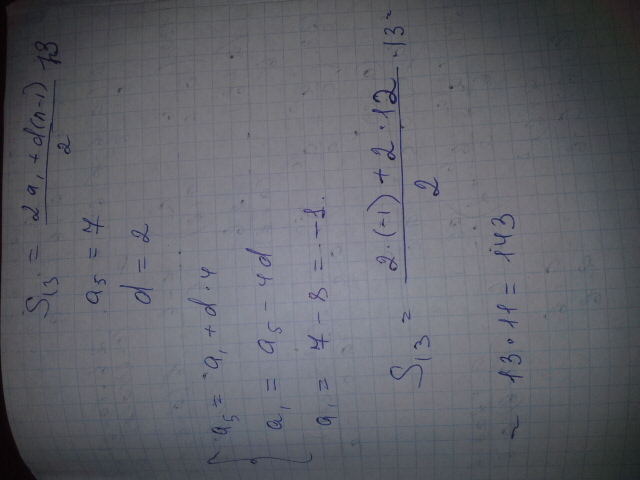 S₁₃ = (2a₁ + d(n-1))/2 · 13
a₅ = 7
d = 2
{ a₅ = a₁ + d · 4
a₁ = a₅ - 4d
a₁ = 7 - 8 = -1.
S₁₃ = (2 · (-1) + 2 · 12)/2 · 13 =
= 13 · 11 = 143